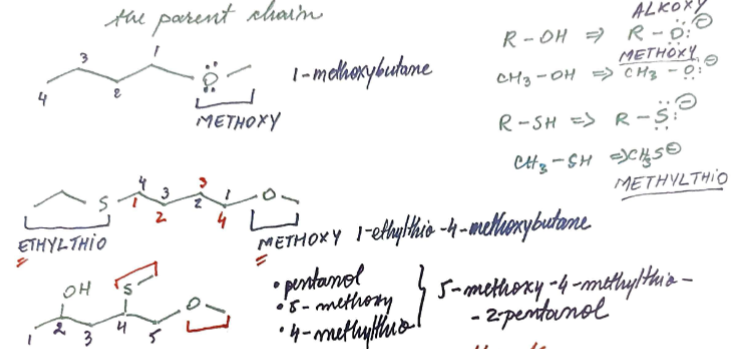 the parent chain
ALKOXY
R-OH ⇒ R-Ö:⊖
3 1
4 2
O
METHOXY
1-methoxybutane
METHOXY
CH3-OH ⇒ CH3-O:⊖
R-SH => R-S:⊖
CH3-SH =>CH3S⊖
METHYLTHIO
S 4 3 3 1 O
1 2 2 4
ETHYLTHIO
METHOXY 1-ethylthio-4-methoxybutane
OH S O
1 2 3 4 5
• pentanol
• 5-methoxy
• 4-methylthio
5-methoxy-4-methylthio-
-2-pentanol